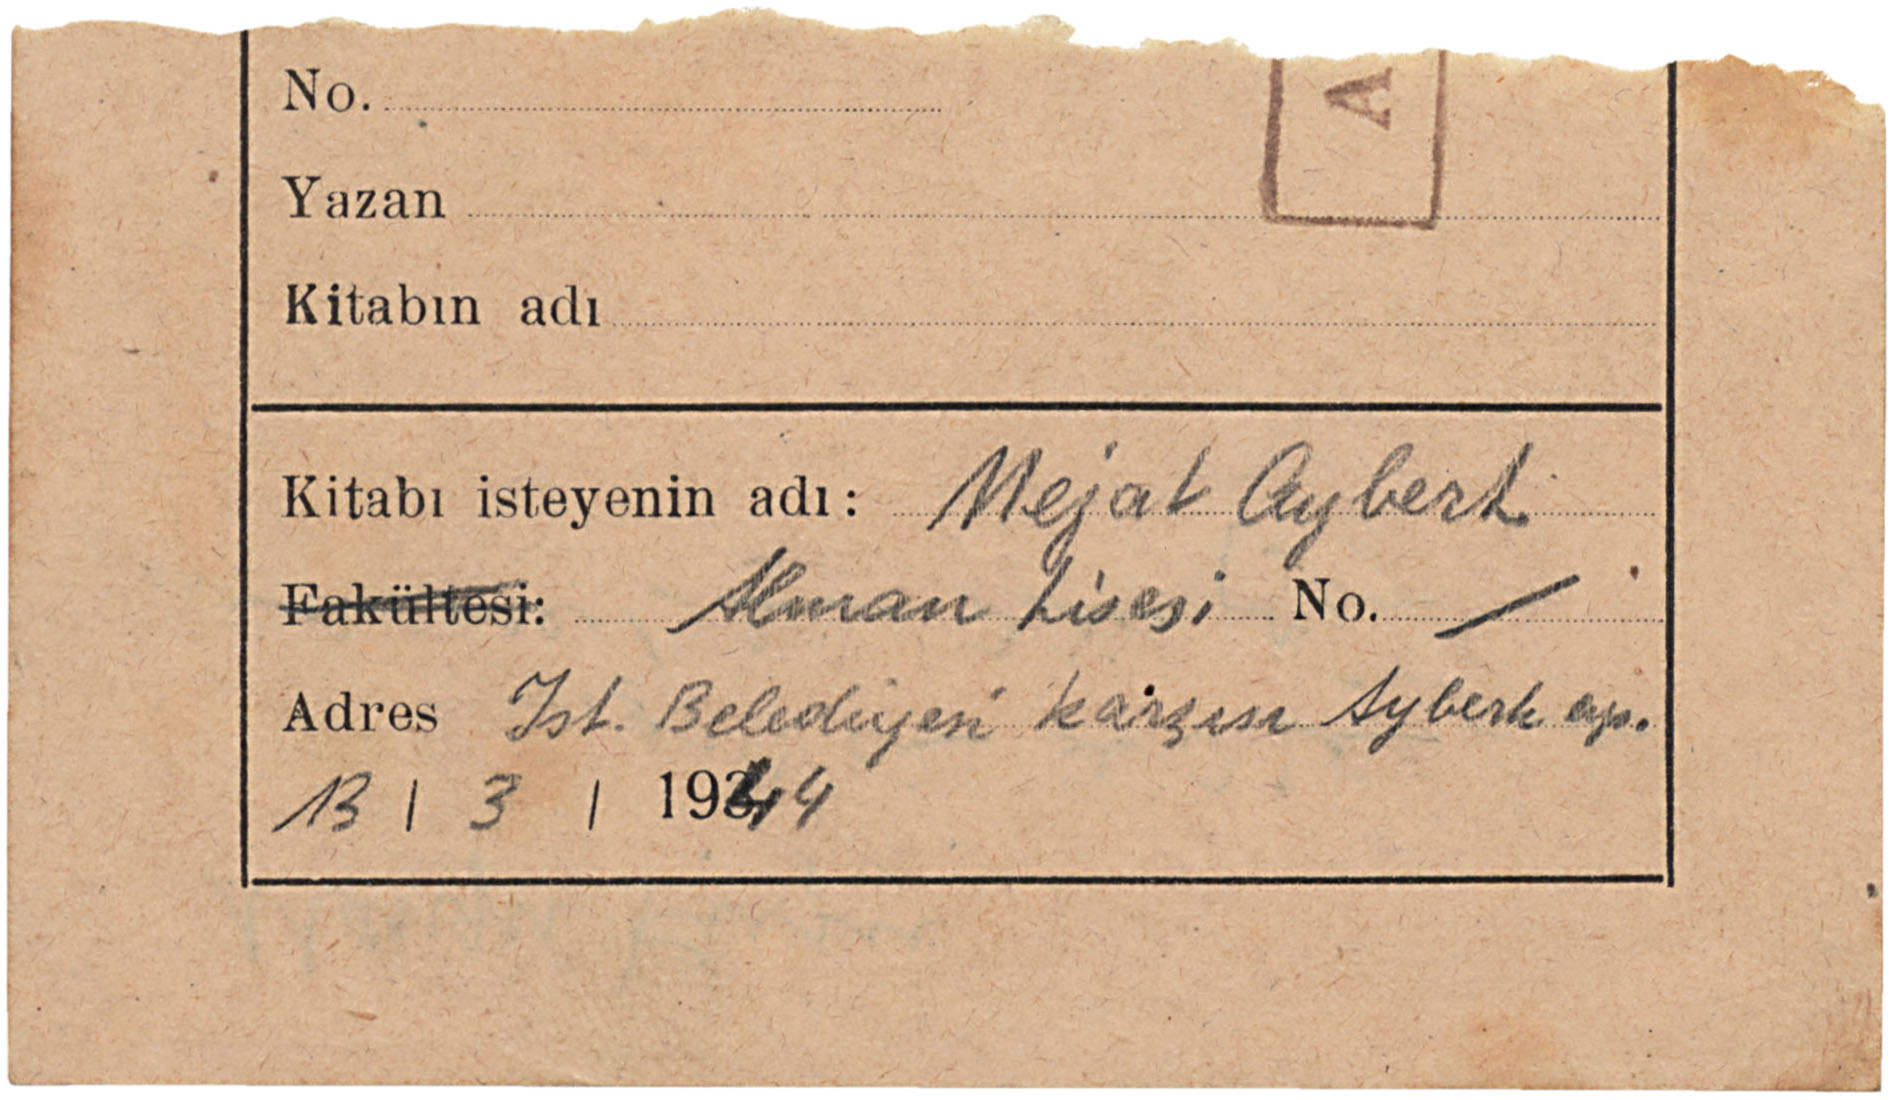 No.
A
Yazan
Kitabın adı
Kitabı isteyenin adı: Nejat Ayberk
Fakültesi: Alman Lisesi No. /
Adres İst. Belediyesi karşısı Ayberk ap.
13 / 3 / 1944